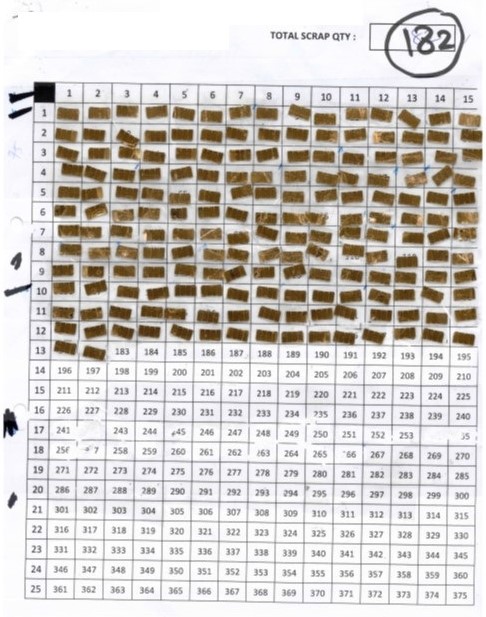 TOTAL SCRAP QTY :
182
1 2 3 4 5 6 7 8 9 10 11 12 13 14 15
1
2
3
4
5
6
7
8
9
10
11
12
13 183 184 185 186 187 188 189 190 191 192 193 194 195
14 196 197 198 199 200 201 202 203 204 205 206 207 208 209 210
15 211 212 213 214 215 216 217 218 219 220 221 222 223 224 225
16 226 227 228 229 230 231 232 233 234 235 236 237 238 239 240
17 241 243 244 245 246 247 248 249 250 251 252 253
18 256 258 259 260 261 262 263 264 265 266 267 268 269 270
19 271 272 273 274 275 276 277 278 279 280 281 282 283 284 285
20 286 287 288 289 290 291 292 293 294 295 296 297 298 299 300
21 301 302 303 304 305 306 307 308 309 310 311 312 313 314 315
22 316 317 318 319 320 321 322 323 324 325 326 327 328 329 330
23 331 332 333 334 335 336 337 338 339 340 341 342 343 344 345
24 346 347 348 349 350 351 352 353 354 355 356 357 358 359 360
25 361 362 363 364 365 366 367 368 369 370 371 372 373 374 375